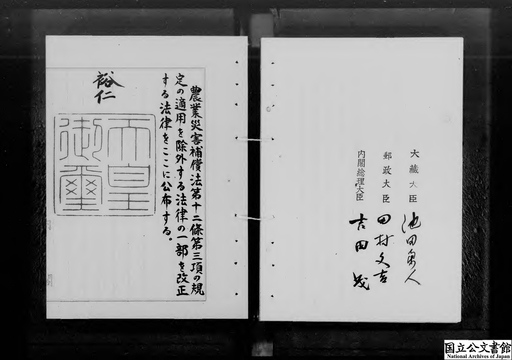 農業災害補償法第十二條第三項の規
定の適用を除外する法律の一部を改正
する法律をここに公布する。
裕仁
天皇
御璽
大藏大臣 池田勇人
郵政大臣 田村文吉
内閣総理大臣 吉田茂
国立公文書館
National Archives of Japan